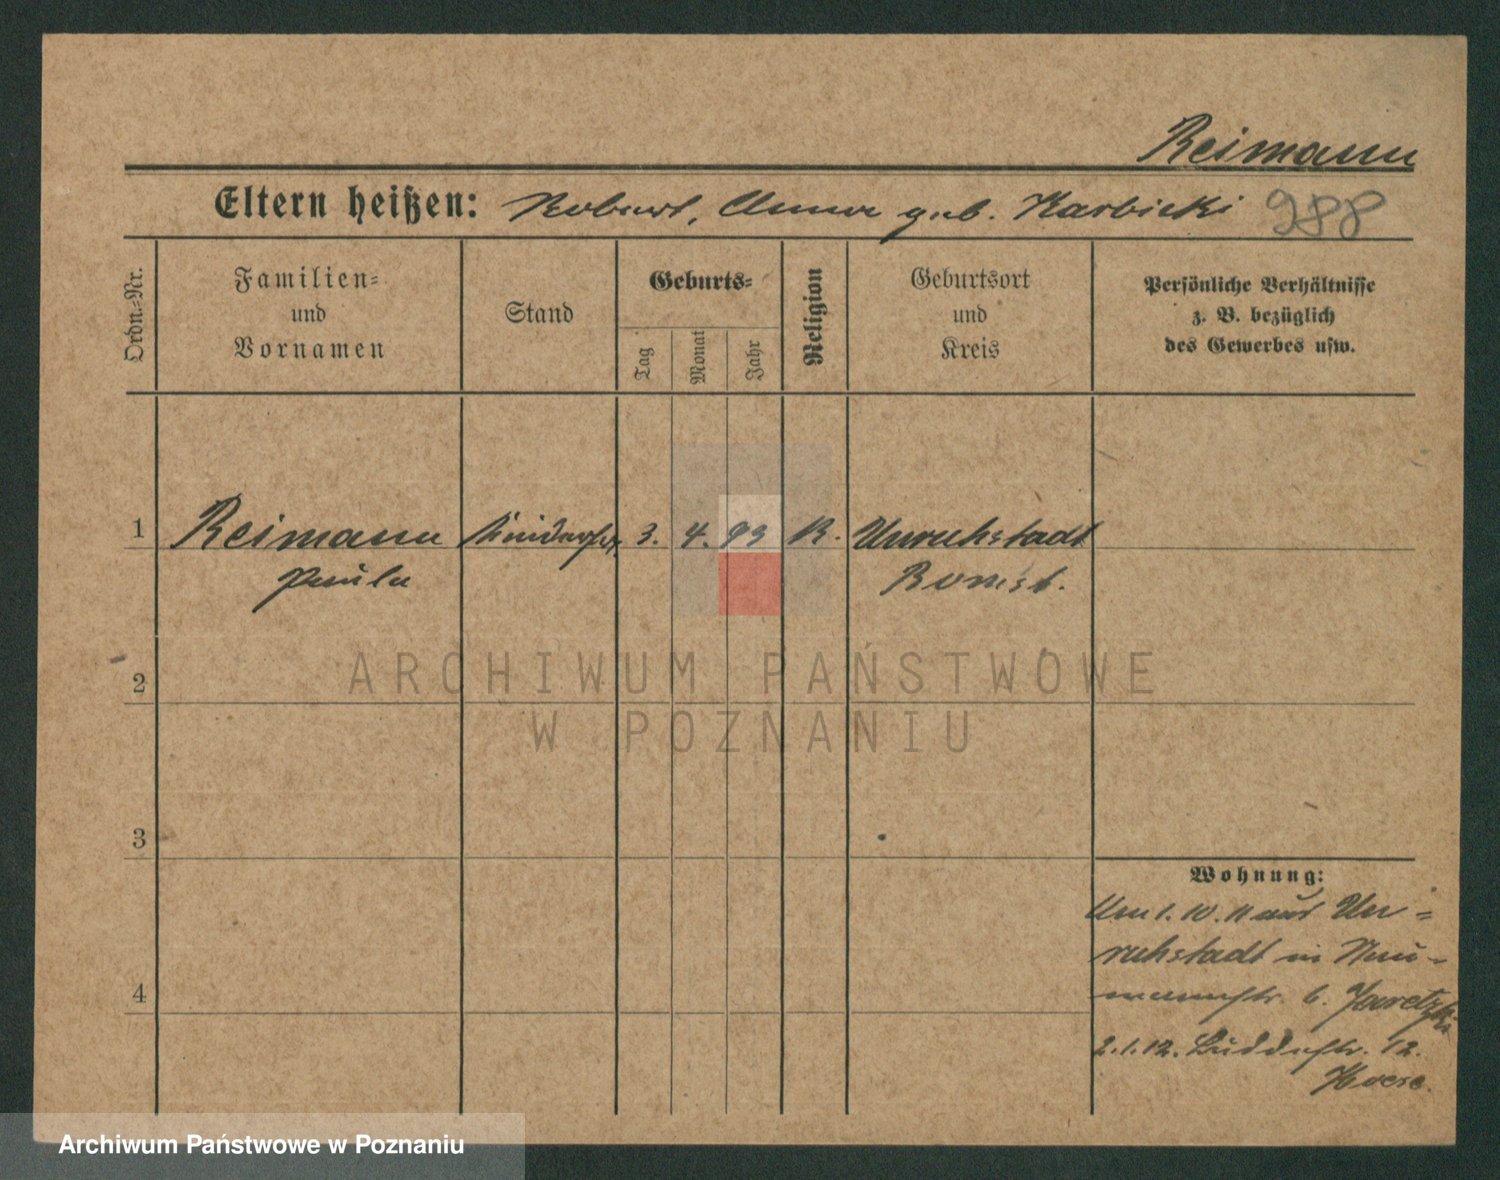 Reimann
Eltern heißen: Robert, Anna geb. Karbicki 988
Ordn.-Nr.
Familien-
und
Vornamen
Stand
Geburts-
Tag
Monat
Jahr
Religion
Geburtsort
und
Kreis
Persönliche Verhältnisse
z. B. bezüglich
des Gewerbes usw.
1 Reimann 3. 4. 93 K. Unruhstadt
Paula Bomst.
2
ARCHIWUM PAŃSTWOWE
W POZNANIU
3
4
Wohnung:
Am 1. 10. 11 aus Un-
ruhstadt in Neu-
mannstr. b. Jaretzki
2. 1. 12. 12.
Archiwum Państwowe w Poznaniu